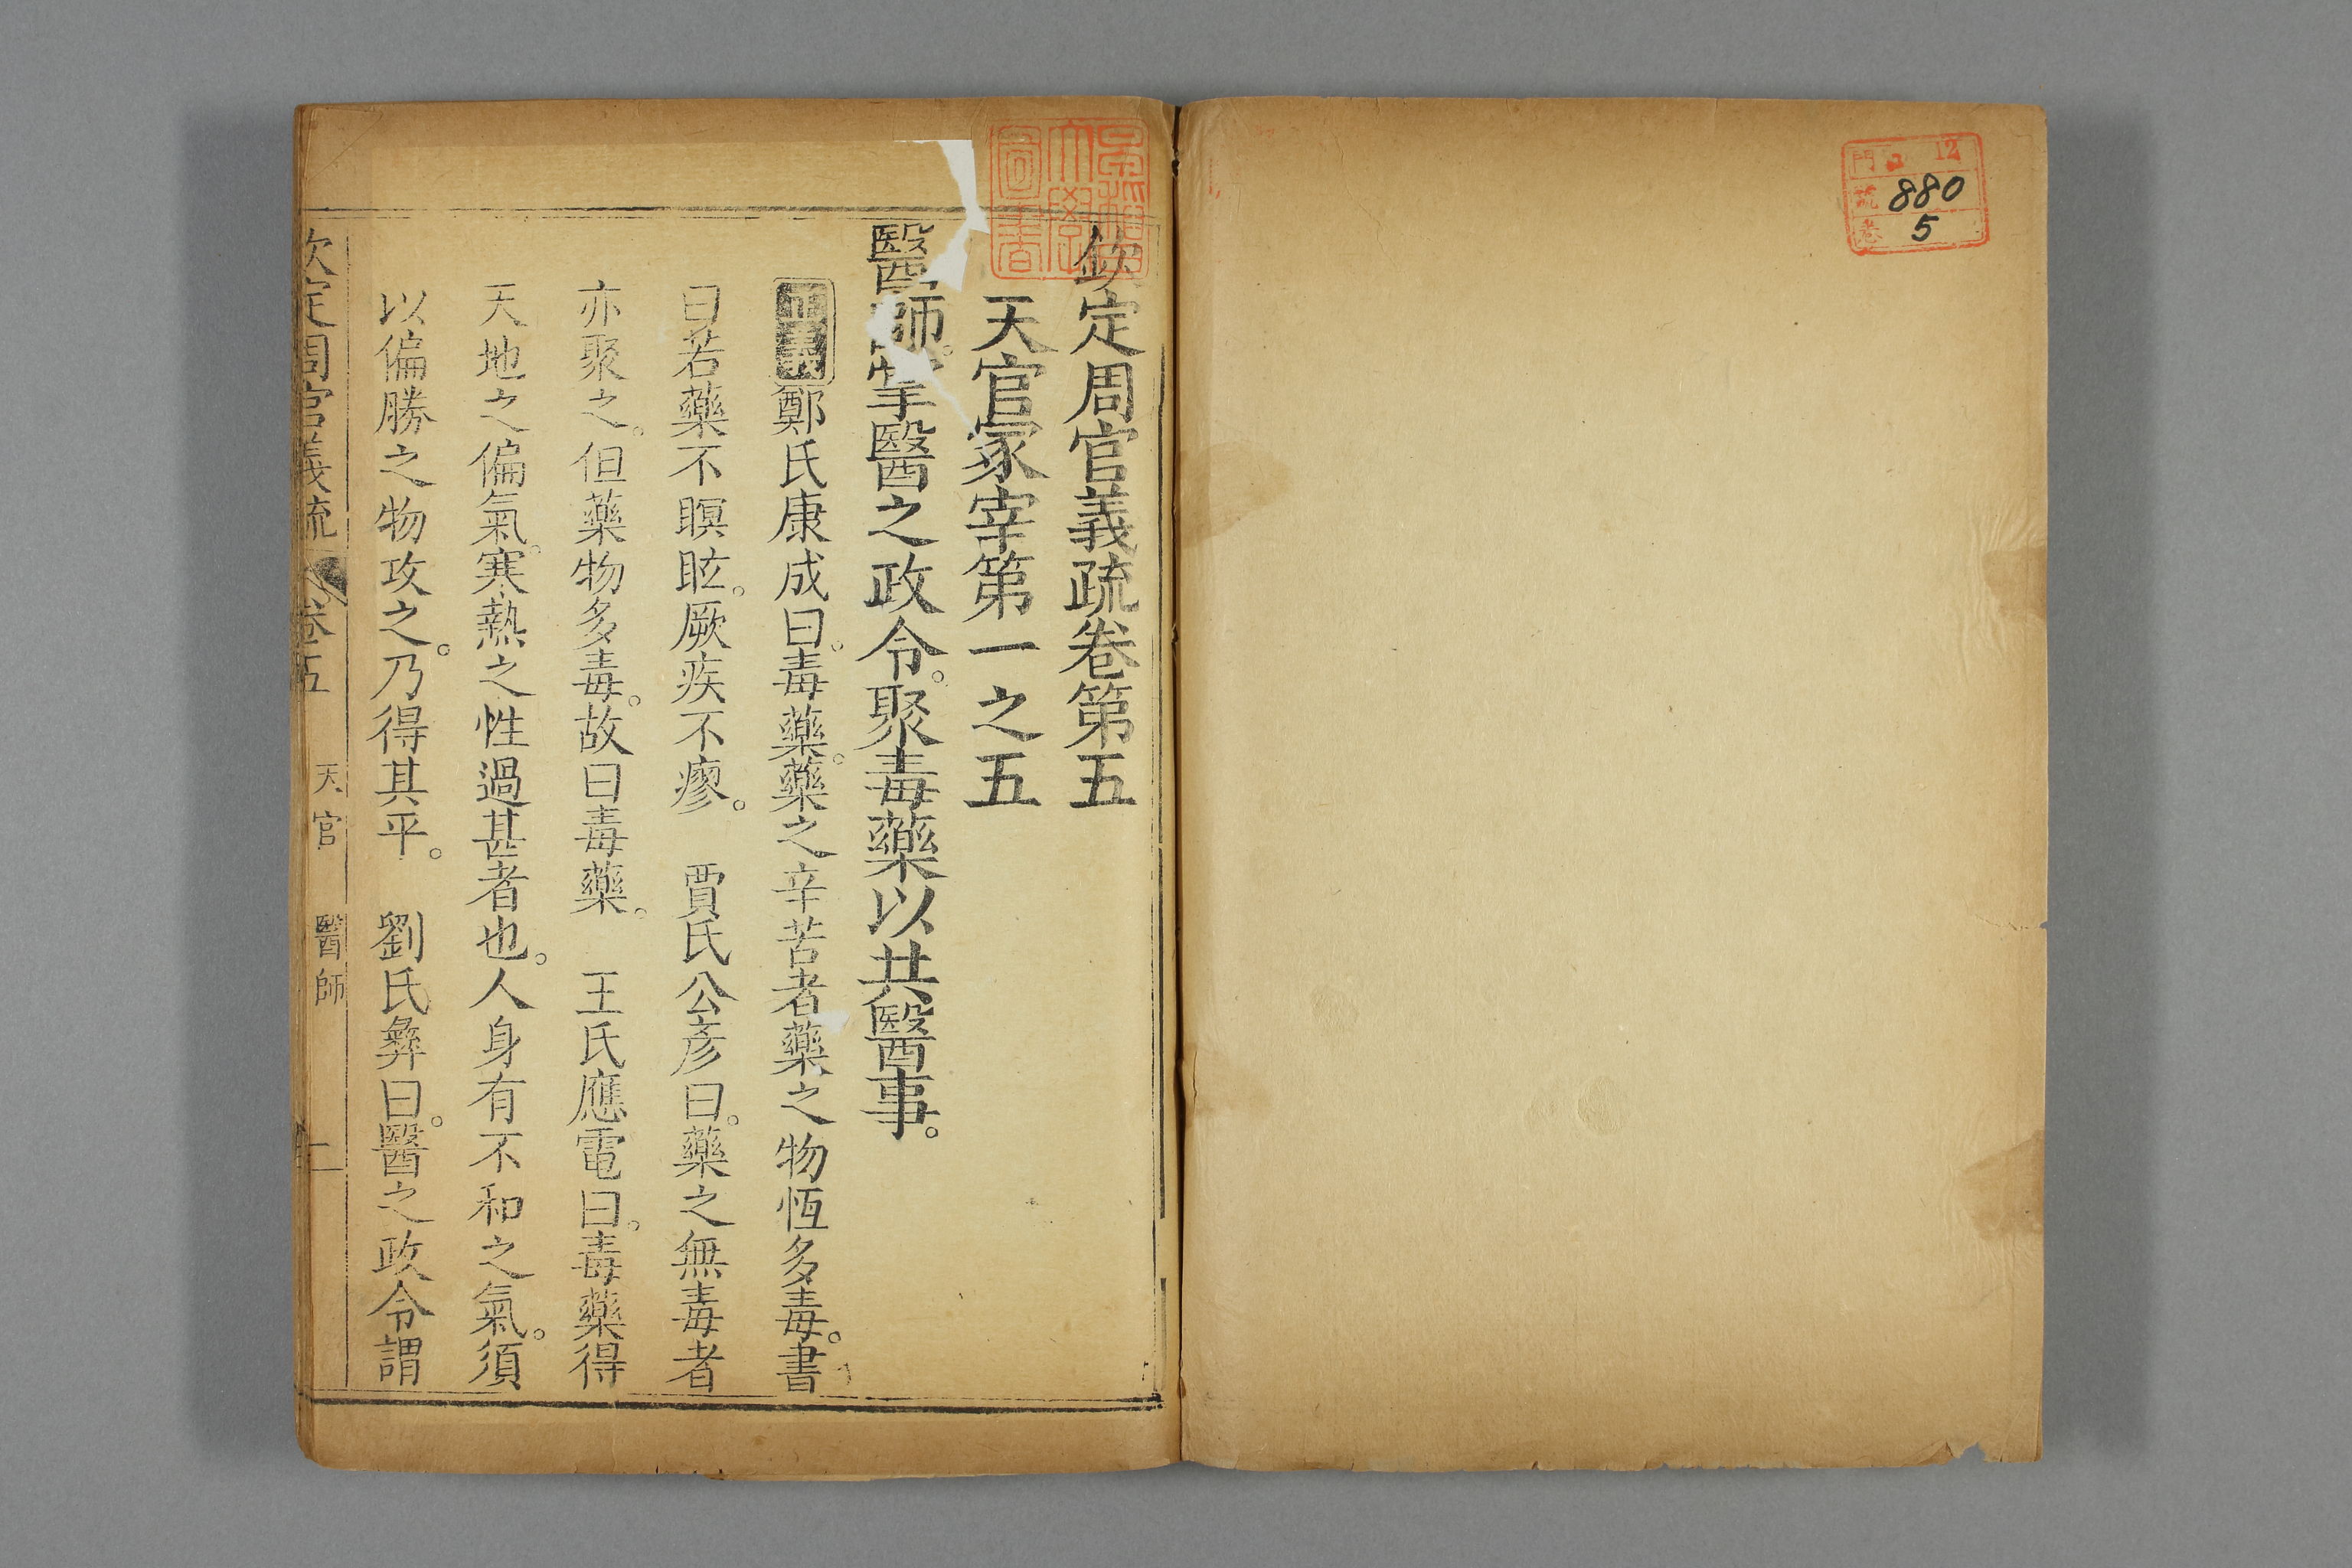 門 ロ 12
號 880
卷 5
欽定周官義疏卷第五
天官冢宰第一之五
醫師。掌醫之政令。聚毒藥以共醫事。
正義鄭氏康成曰。毒藥。藥之辛苦者藥之物恆多毒。書
曰若藥不瞑眩。厥疾不瘳。 賈氏公彥曰。藥之無毒者
亦聚之。但藥物多毒。故曰毒藥。 王氏應電曰。毒藥得
天地之偏氣。寒熱之性過甚者也。人身有不和之氣。須
以偏勝之物攻之。乃得其平。 劉氏彝曰。醫之政令謂
欽定周官義疏 卷五 天官 醫師 一